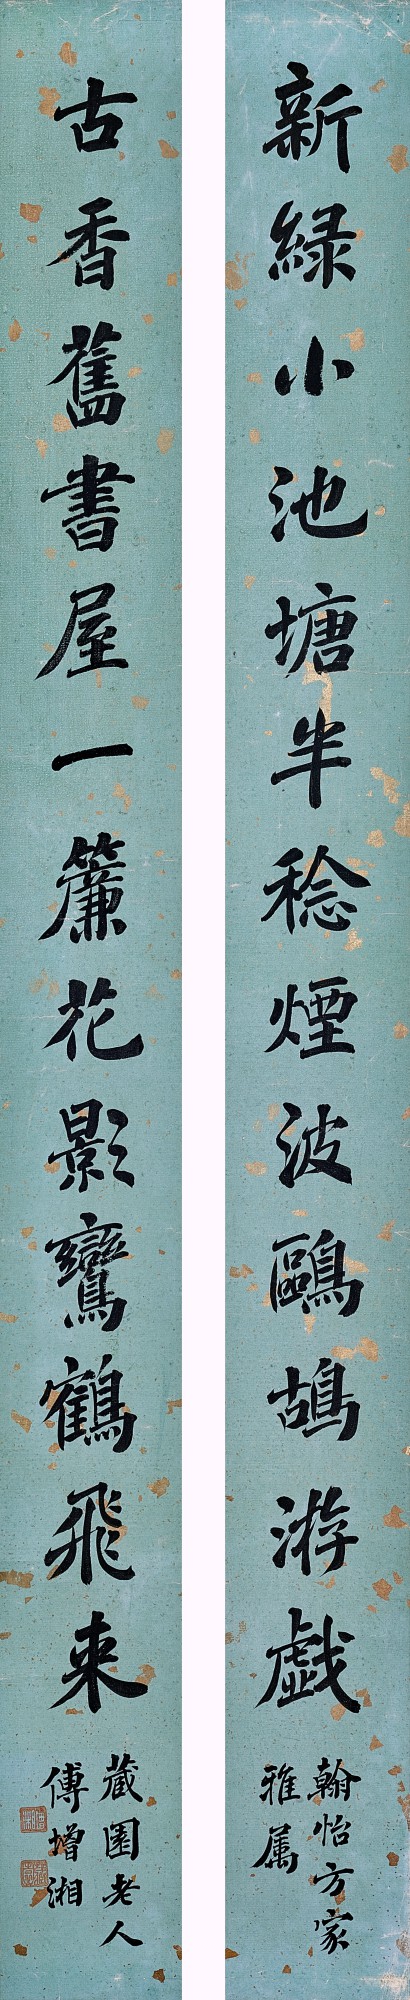 新緑小池塘半稔煙波鷗鴣游戯
翰怡方家
雅属
古香舊書屋一簾花影鸞鶴飛来
藏園老人
傅增湘